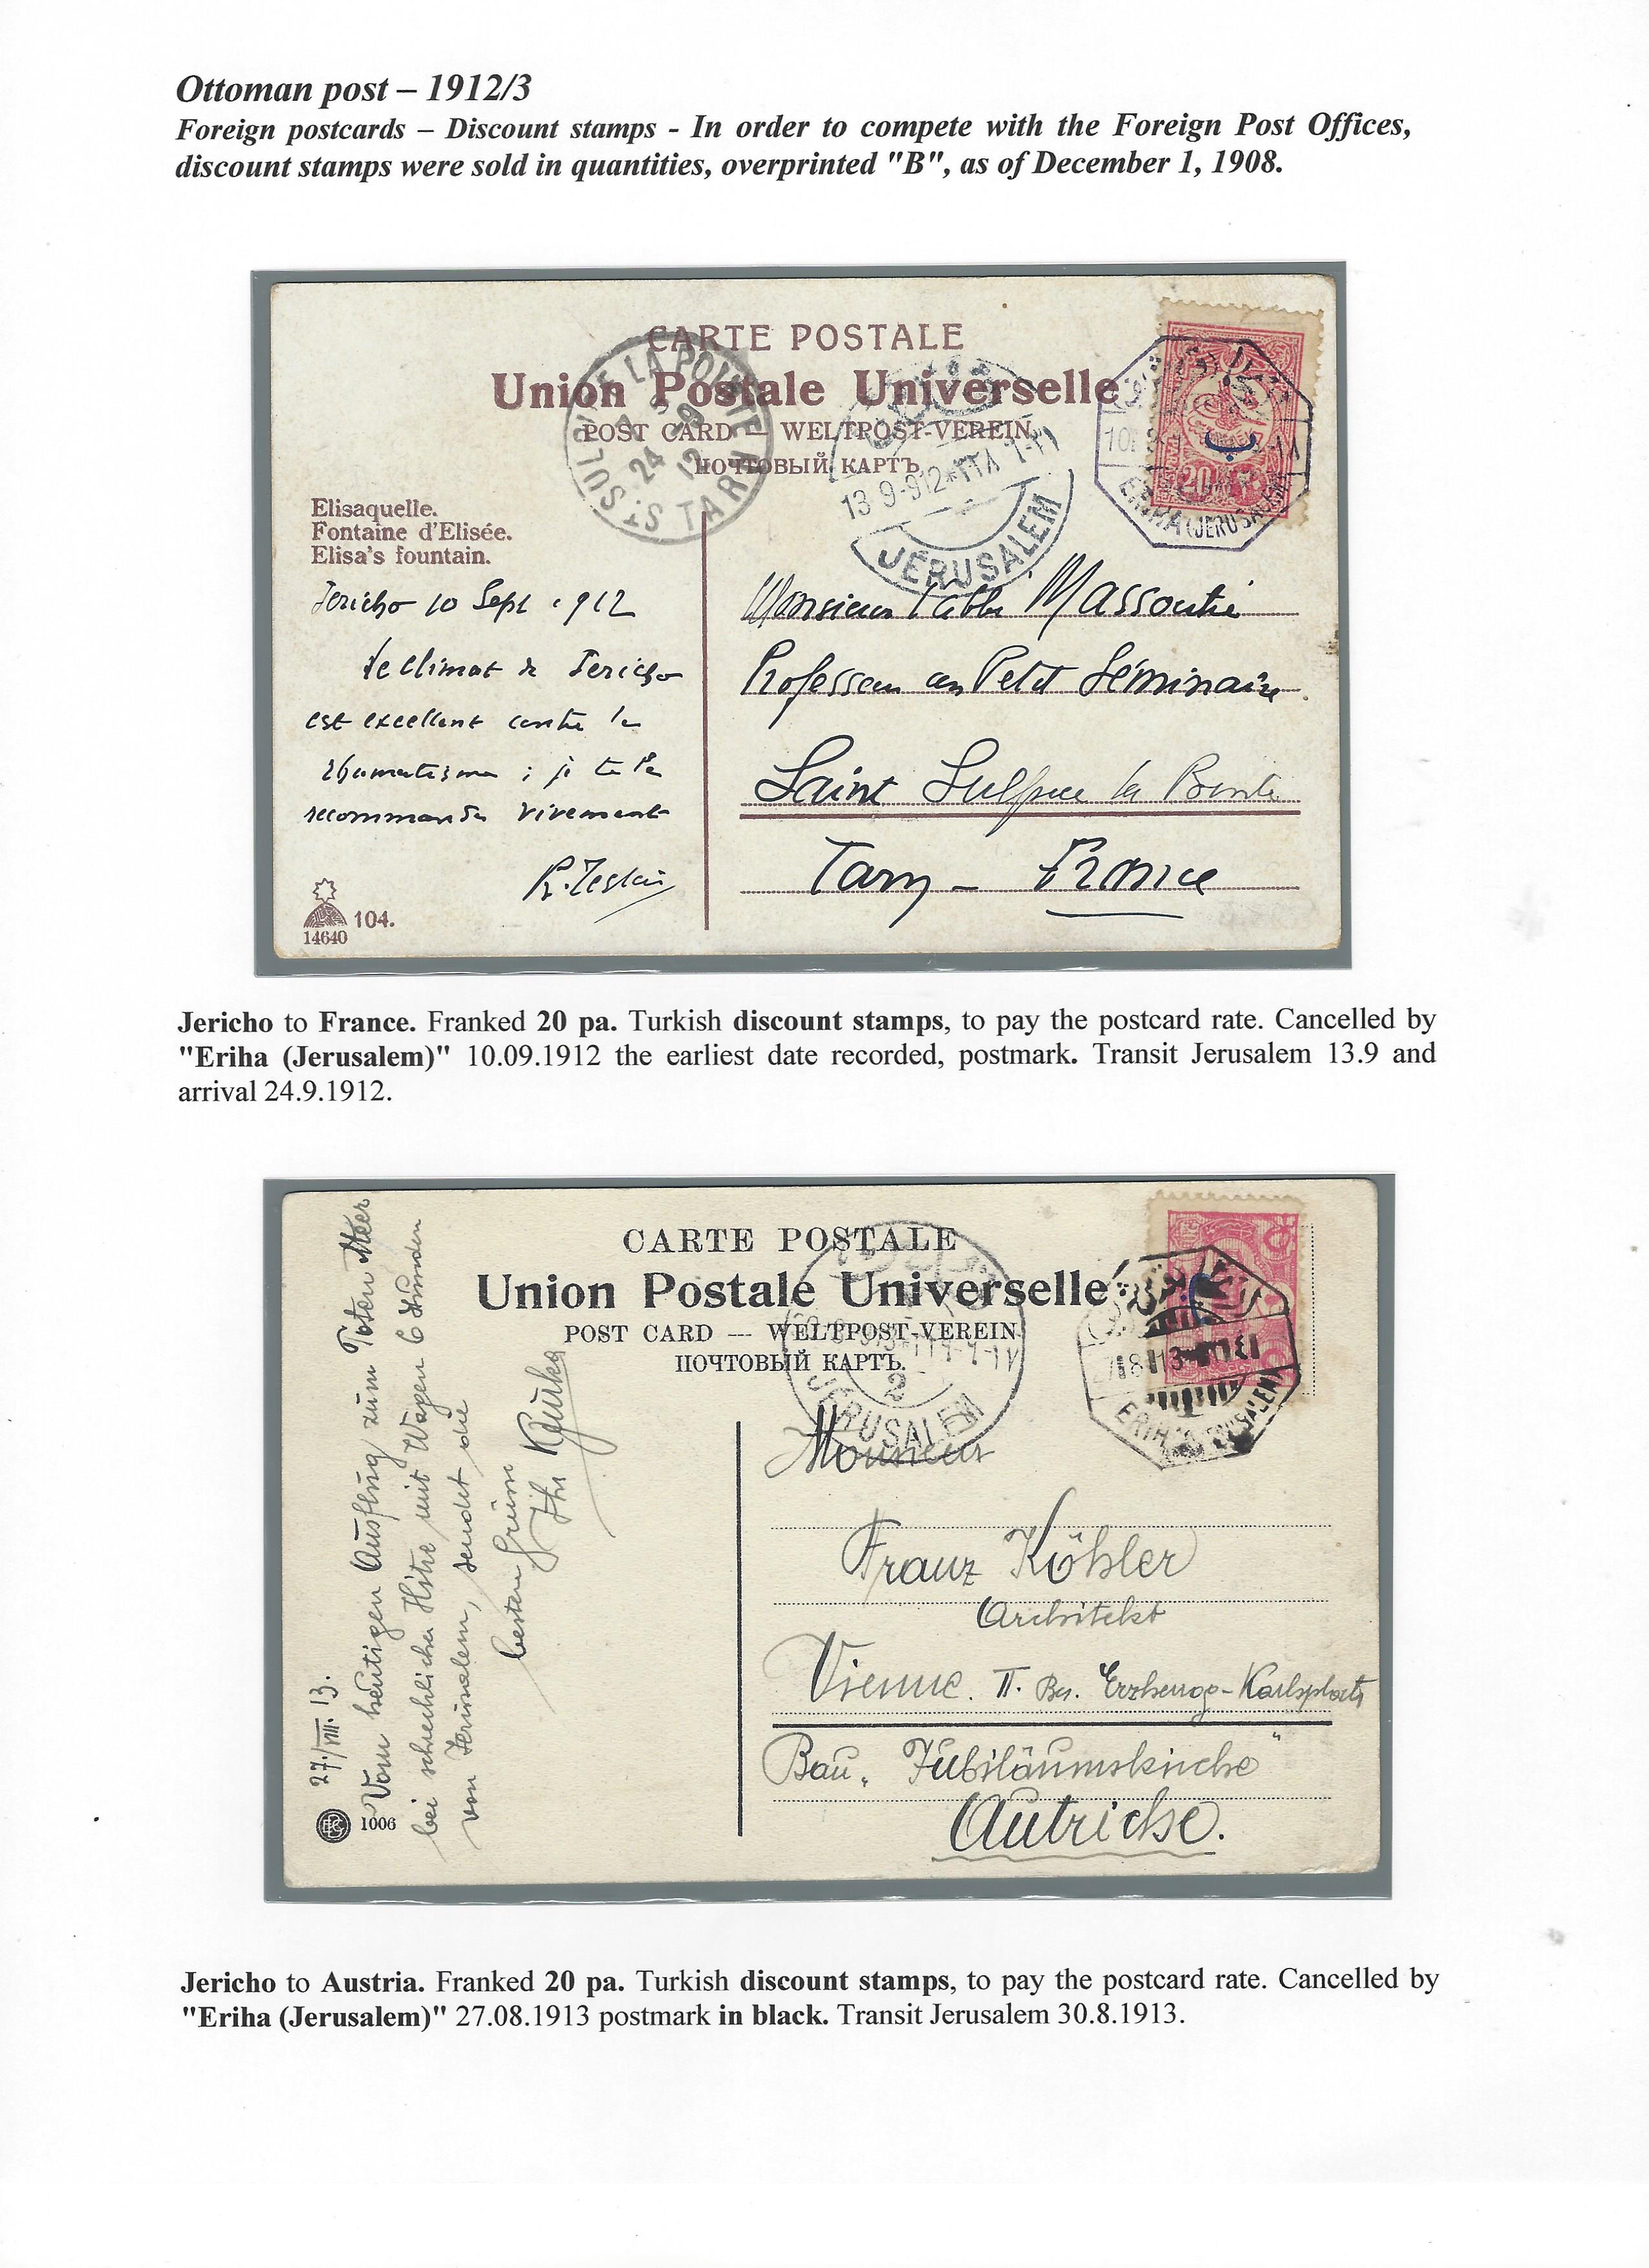 Ottoman post – 1912/3
Foreign postcards – Discount stamps - In order to compete with the Foreign Post Offices,
discount stamps were sold in quantities, overprinted "B", as of December 1, 1908.
CARTE POSTALE
Union Postale Universelle
POST CARD — WELTPOST-VEREIN
ПОЧТОВЫЙ КАРТЪ
ST SULPICE LA POINTE
24 9 12
TARN
13 9-912
JERUSALEM
20
ERIHA (JERUSALEM)
Elisaquelle.
Fontaine d'Elisée.
Elisa's fountain.
Jericho 10 Sept 1912
Le climat de Jericho
est excellent contre le
rhumatisme ; je te le
recommande vivement
104.
14640
Monsieur l'abbé Massoutié
Professeur au Petit Séminaire
Saint Sulpice la Pointe
Tarn – France
Jericho to France. Franked 20 pa. Turkish discount stamps, to pay the postcard rate. Cancelled by
"Eriha (Jerusalem)" 10.09.1912 the earliest date recorded, postmark. Transit Jerusalem 13.9 and
arrival 24.9.1912.
CARTE POSTALE
Union Postale Universelle
POST CARD --- WELTPOST-VEREIN
ПОЧТОВЫЙ КАРТЪ.
2
JERUSALEM
ERIHA (JERUSALEM)
27./VIII. 13.
Vom heutigen Ausflug zum Toten Meer
bei schrecklicher Hitze mit Wagen 6 Stunden
von Jerusalem, sendet die
besten Grüsse
Ihr
1006
Monsieur
Franz Köhler
Architekt
Vienne. II. Bez. Erzherzog-Karlsplatz
Bau „Jubiläumskirche"
Autriche.
Jericho to Austria. Franked 20 pa. Turkish discount stamps, to pay the postcard rate. Cancelled by
"Eriha (Jerusalem)" 27.08.1913 postmark in black. Transit Jerusalem 30.8.1913.